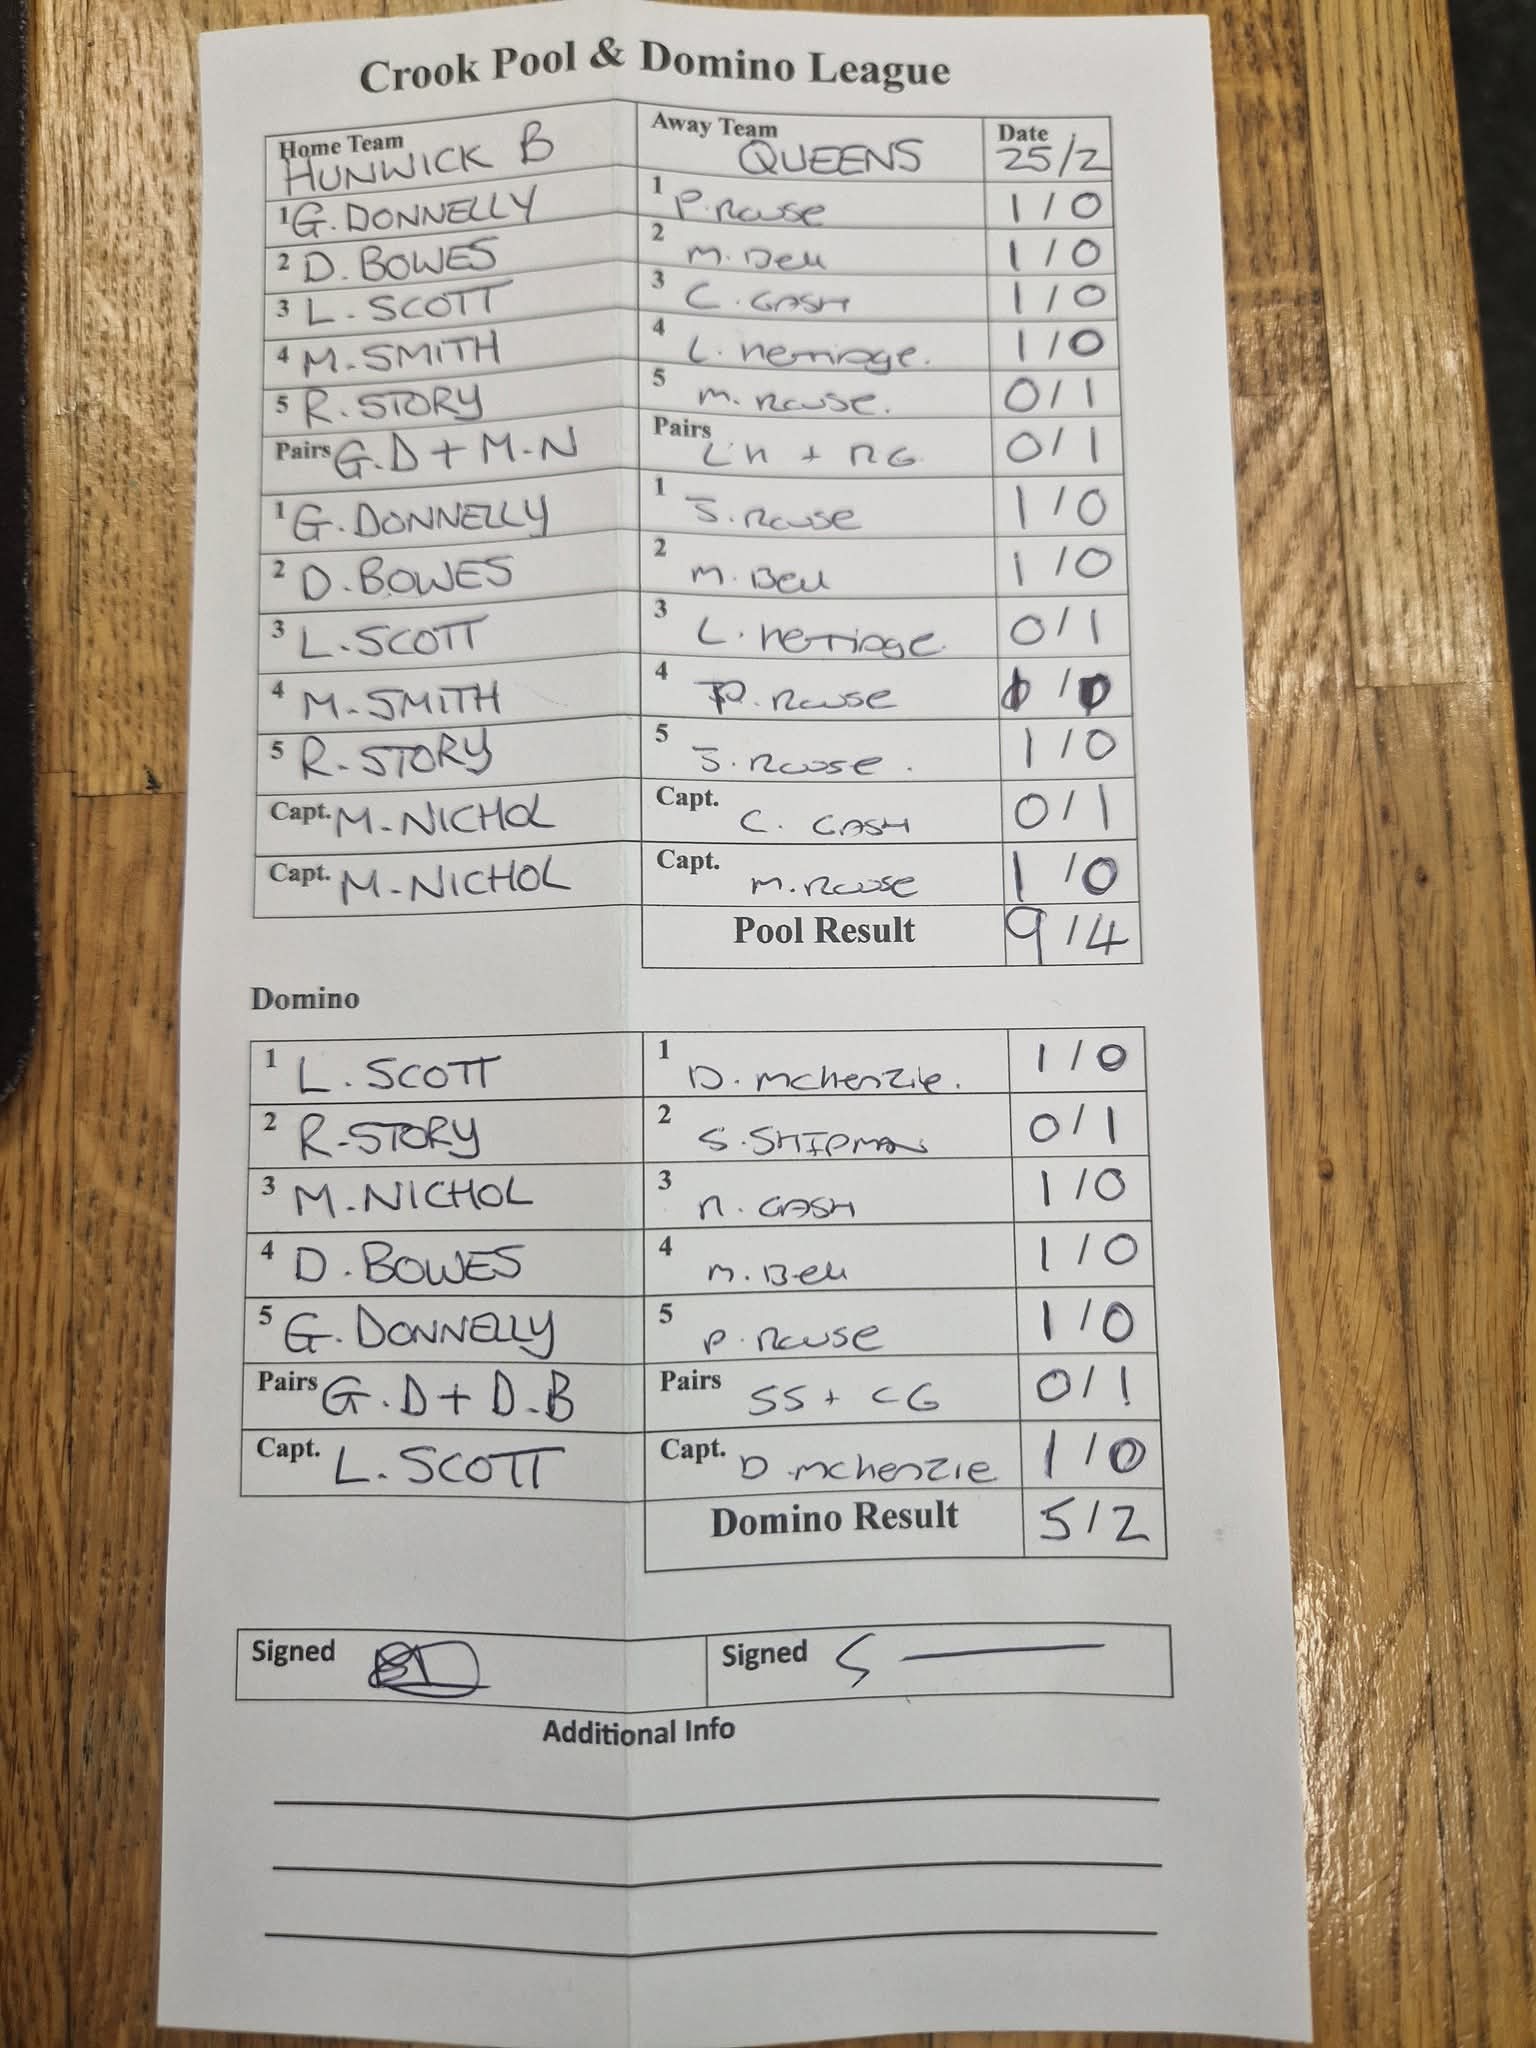 Crook Pool & Domino League
Home Team Away Team Date
HUNWICK B QUEENS 25/2
1 G. DONNELLY 1 P. Rowse 1/0
2 D. BOWES 2 M. Bell 1/0
3 L. SCOTT 3 C. GASH 1/0
4 M. SMITH 4 L. Herriage. 1/0
5 R. STORY 5 M. Rowse. 0/1
Pairs G.D + M.N Pairs LH + RG 0/1
1 G. DONNELLY 1 J. Rowse 1/0
2 D. BOWES 2 M. Bell 1/0
3 L. SCOTT 3 L. Herriage. 0/1
4 M. SMITH 4 P. Rowse
5 R. STORY 5 J. Rowse. 1/0
Capt. M. NICHOL Capt. C. GASH 0/1
Capt. M. NICHOL Capt. M. Rowse 1/0
Pool Result 9/4
Domino
1 L. SCOTT 1 D. McKenzie. 1/0
2 R. STORY 2 S. SHIPMAN 0/1
3 M. NICHOL 3 R. GASH 1/0
4 D. BOWES 4 M. Bell 1/0
5 G. DONNELLY 5 P. Rowse 1/0
Pairs G.D + D.B Pairs SS + CG 0/1
Capt. L. SCOTT Capt. D McKenzie 1/0
Domino Result 5/2
Signed Signed
Additional Info